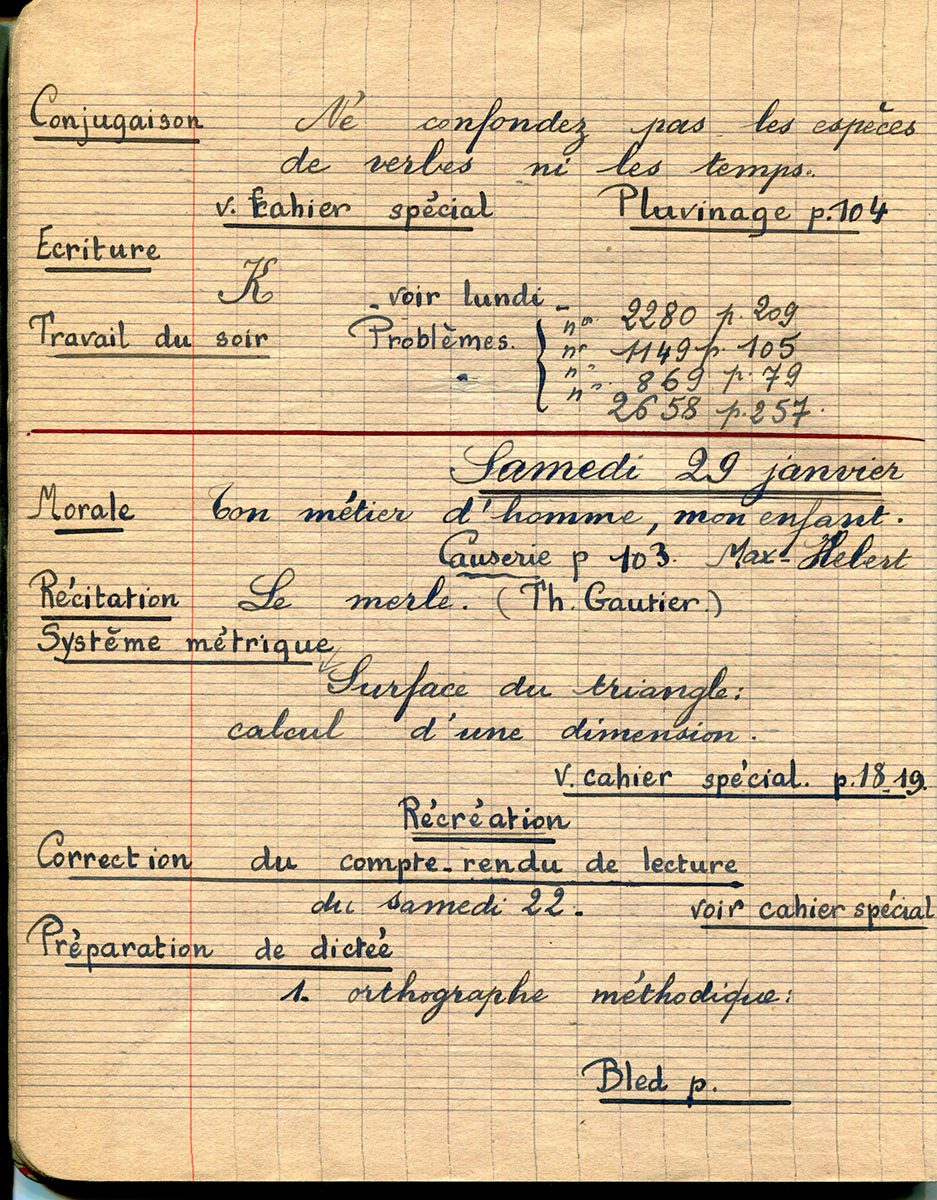 Conjugaison Ne confondez pas les espèces
de verbes ni les temps.
v. cahier spécial Pluvinage p.104
Ecriture
K - voir lundi -
Travail du soir Problèmes. n° 2280 p. 209
n° 1149 p. 105
n° 869 p. 79
n° 2658 p. 257.
Samedi 29 janvier
Morale Ton métier d'homme, mon enfant.
Causerie p 103. Max-Hébert
Récitation Le merle. (Th. Gautier.)
Système métrique
Surface du triangle:
calcul d'une dimension.
v. cahier spécial. p.18-19.
Récréation
Correction du compte-rendu de lecture
du samedi 22. voir cahier spécial
Préparation de dictée
1. orthographe méthodique:
Bled p.